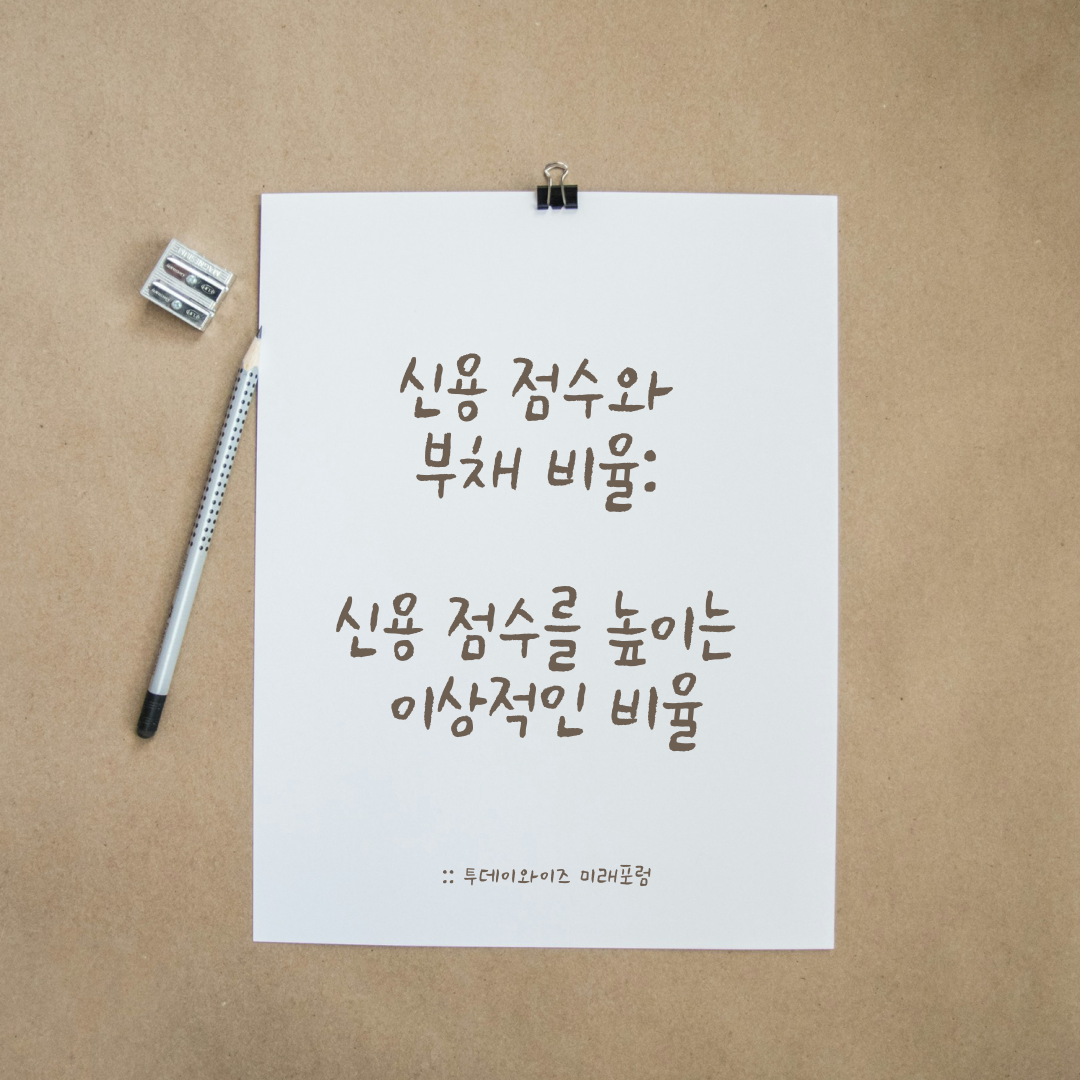 신용 점수와
부채 비율:
신용 점수를 높이는
이상적인 비율
:: 투데이와이즈 미래포럼